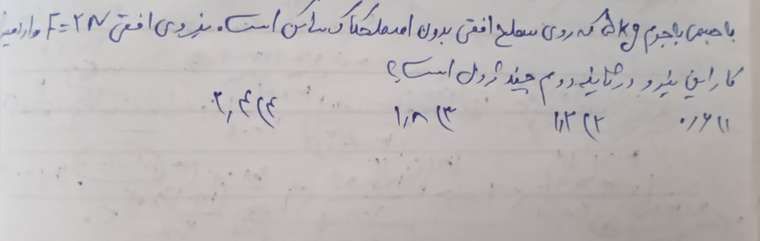 با جسمی با جرم ۵kg که روی سطح افقی بدون اصطکاک ساکن است. نیروی افقی F=۲N وارد میشود
کار این نیرو در ثانیه دوم چند ژول است؟
۱) ۰٫۶ ۲) ۱٫۲ ۳) ۱٫۸ ۴) ۲٫۴